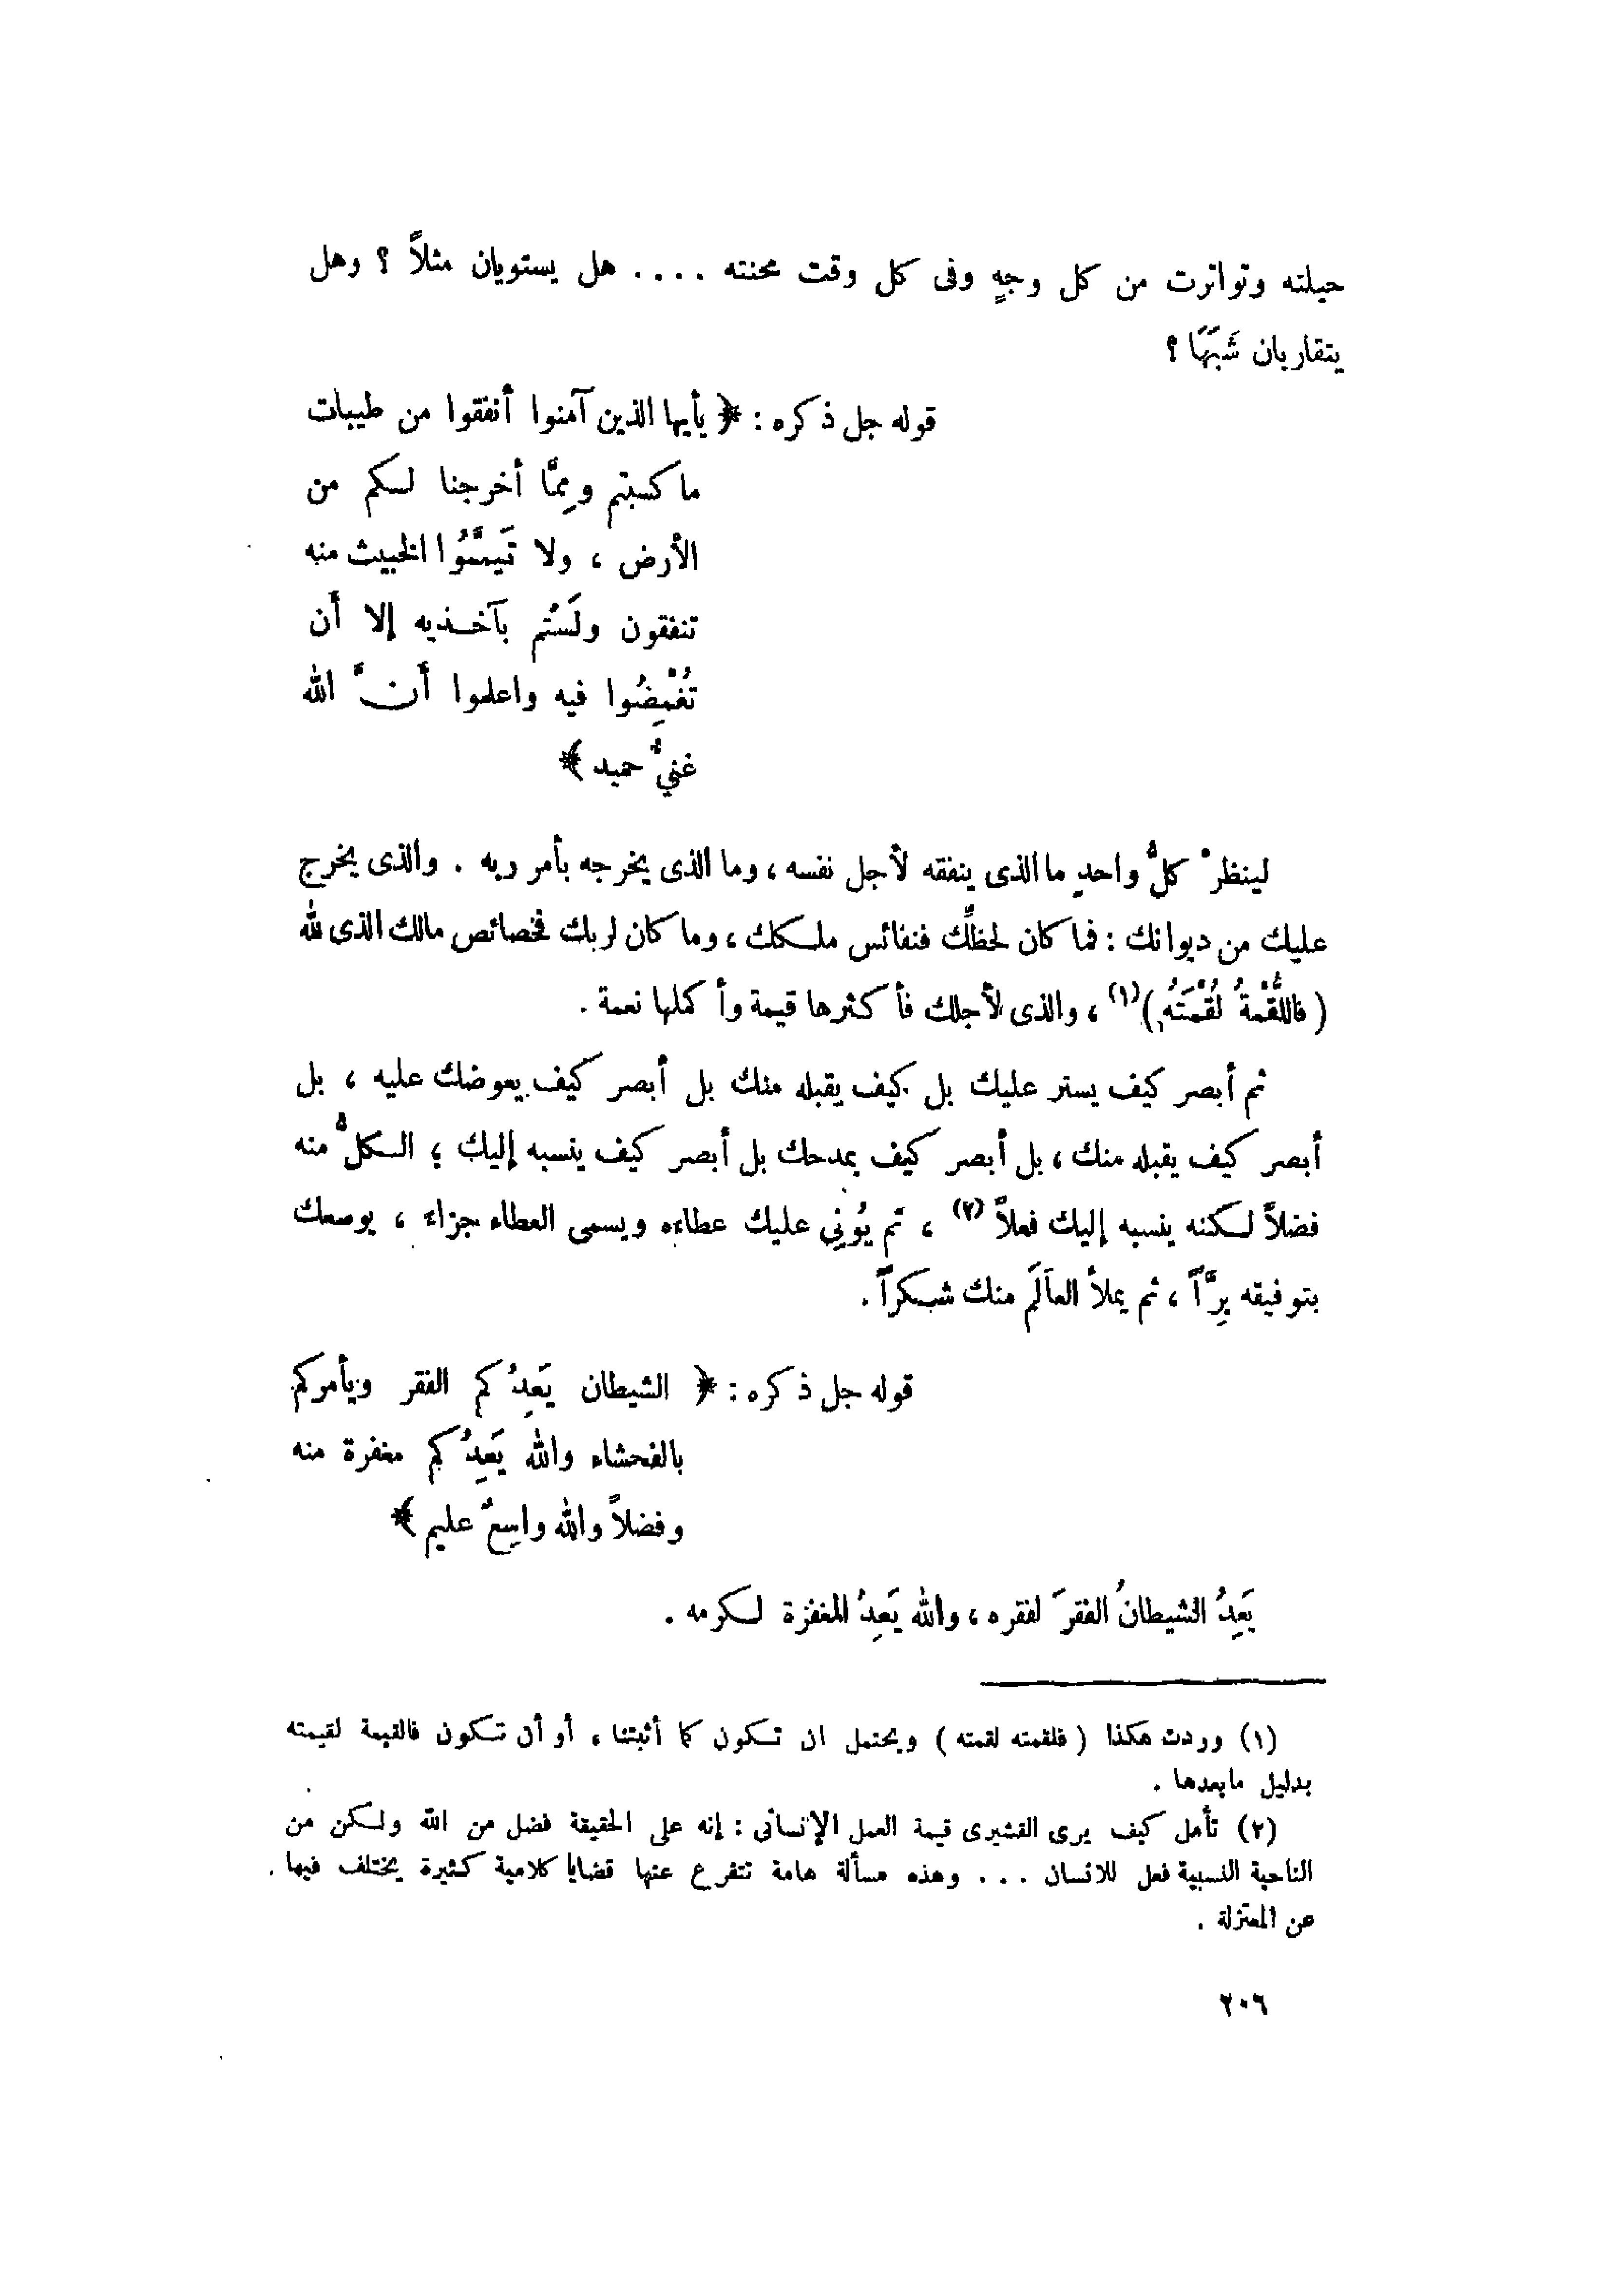 حيلته وتواترت من كل وجهٍ وفى كل وقت محنته .... هل يستويان مثلاً ؟ وهل
يتقاربان شَبَهًا ؟
قوله جل ذكره : ﴿ يأيها الذين آمنوا أنفقوا من طيبات
ما كسبتم ومِمَّا أخرجنا لكم من
الأرض ، ولا تَيَمَّمُوا الخبيث منه
تنفقون ولَسْتُم بآخذيه إلا أن
تُغْمِضُوا فيه واعلموا أنَّ الله
غنيٌّ حميد ﴾
لينظرْ كلُّ واحدٍ ما الذى ينفقه لأجل نفسه ، وما الذى يخرجه بأمر ربه . والذى يخرج
عليك من ديوانك : فما كان لحظِّك فنفائس ملكك ، وما كان لربك فخصائص مالك الذى لله
( فاللُّقْمةُ لُقْمَتُه ) (١) ، والذى لأجلك فأكثرها قيمة وأكملها نعمة .
ثم أبصر كيف يستر عليك بل كيف يقبله منك بل أبصر كيف يعوضك عليه ، بل
أبصر كيف يقبله منك ، بل أبصر كيف يمدحك بل أبصر كيف ينسبه إليك ؛ الكلُّ منه
فضلاً لكنه ينسبه إليك فعلاً (٢) ، ثم يُونِي عليك عطاءه ويسمى العطاء جزاء ، يوسعك
بتوفيقه بِرًّا ، ثم يملأ العالَم منك شكراً .
قوله جل ذكره : ﴿ الشيطان يَعِدُكم الفقر ويأمركم
بالفحشاء والله يَعِدُكم مغفرة منه
وفضلاً والله واسِعٌ عليم ﴾
يَعِدُ الشيطانُ الفقرَ لفقره ، والله يَعِدُ المغفرة لكرمه .
(١) وردت هكذا ( فلقمته لقمته ) ويحتمل ان تكون كما أثبتنا ، أو أن تكون فالقيمة لقيمته
بدليل مابعدها .
(٢) تأمل كيف يرى القشيرى قيمة العمل الإنسانى : إنه على الحقيقة فضل من الله ولكن من
الناحية النسبية فعل للانسان ... وهذه مسألة هامة تتفرع عنها قضايا كلامية كثيرة يختلف فيها .
عن المعتزلة .
٢٠٦